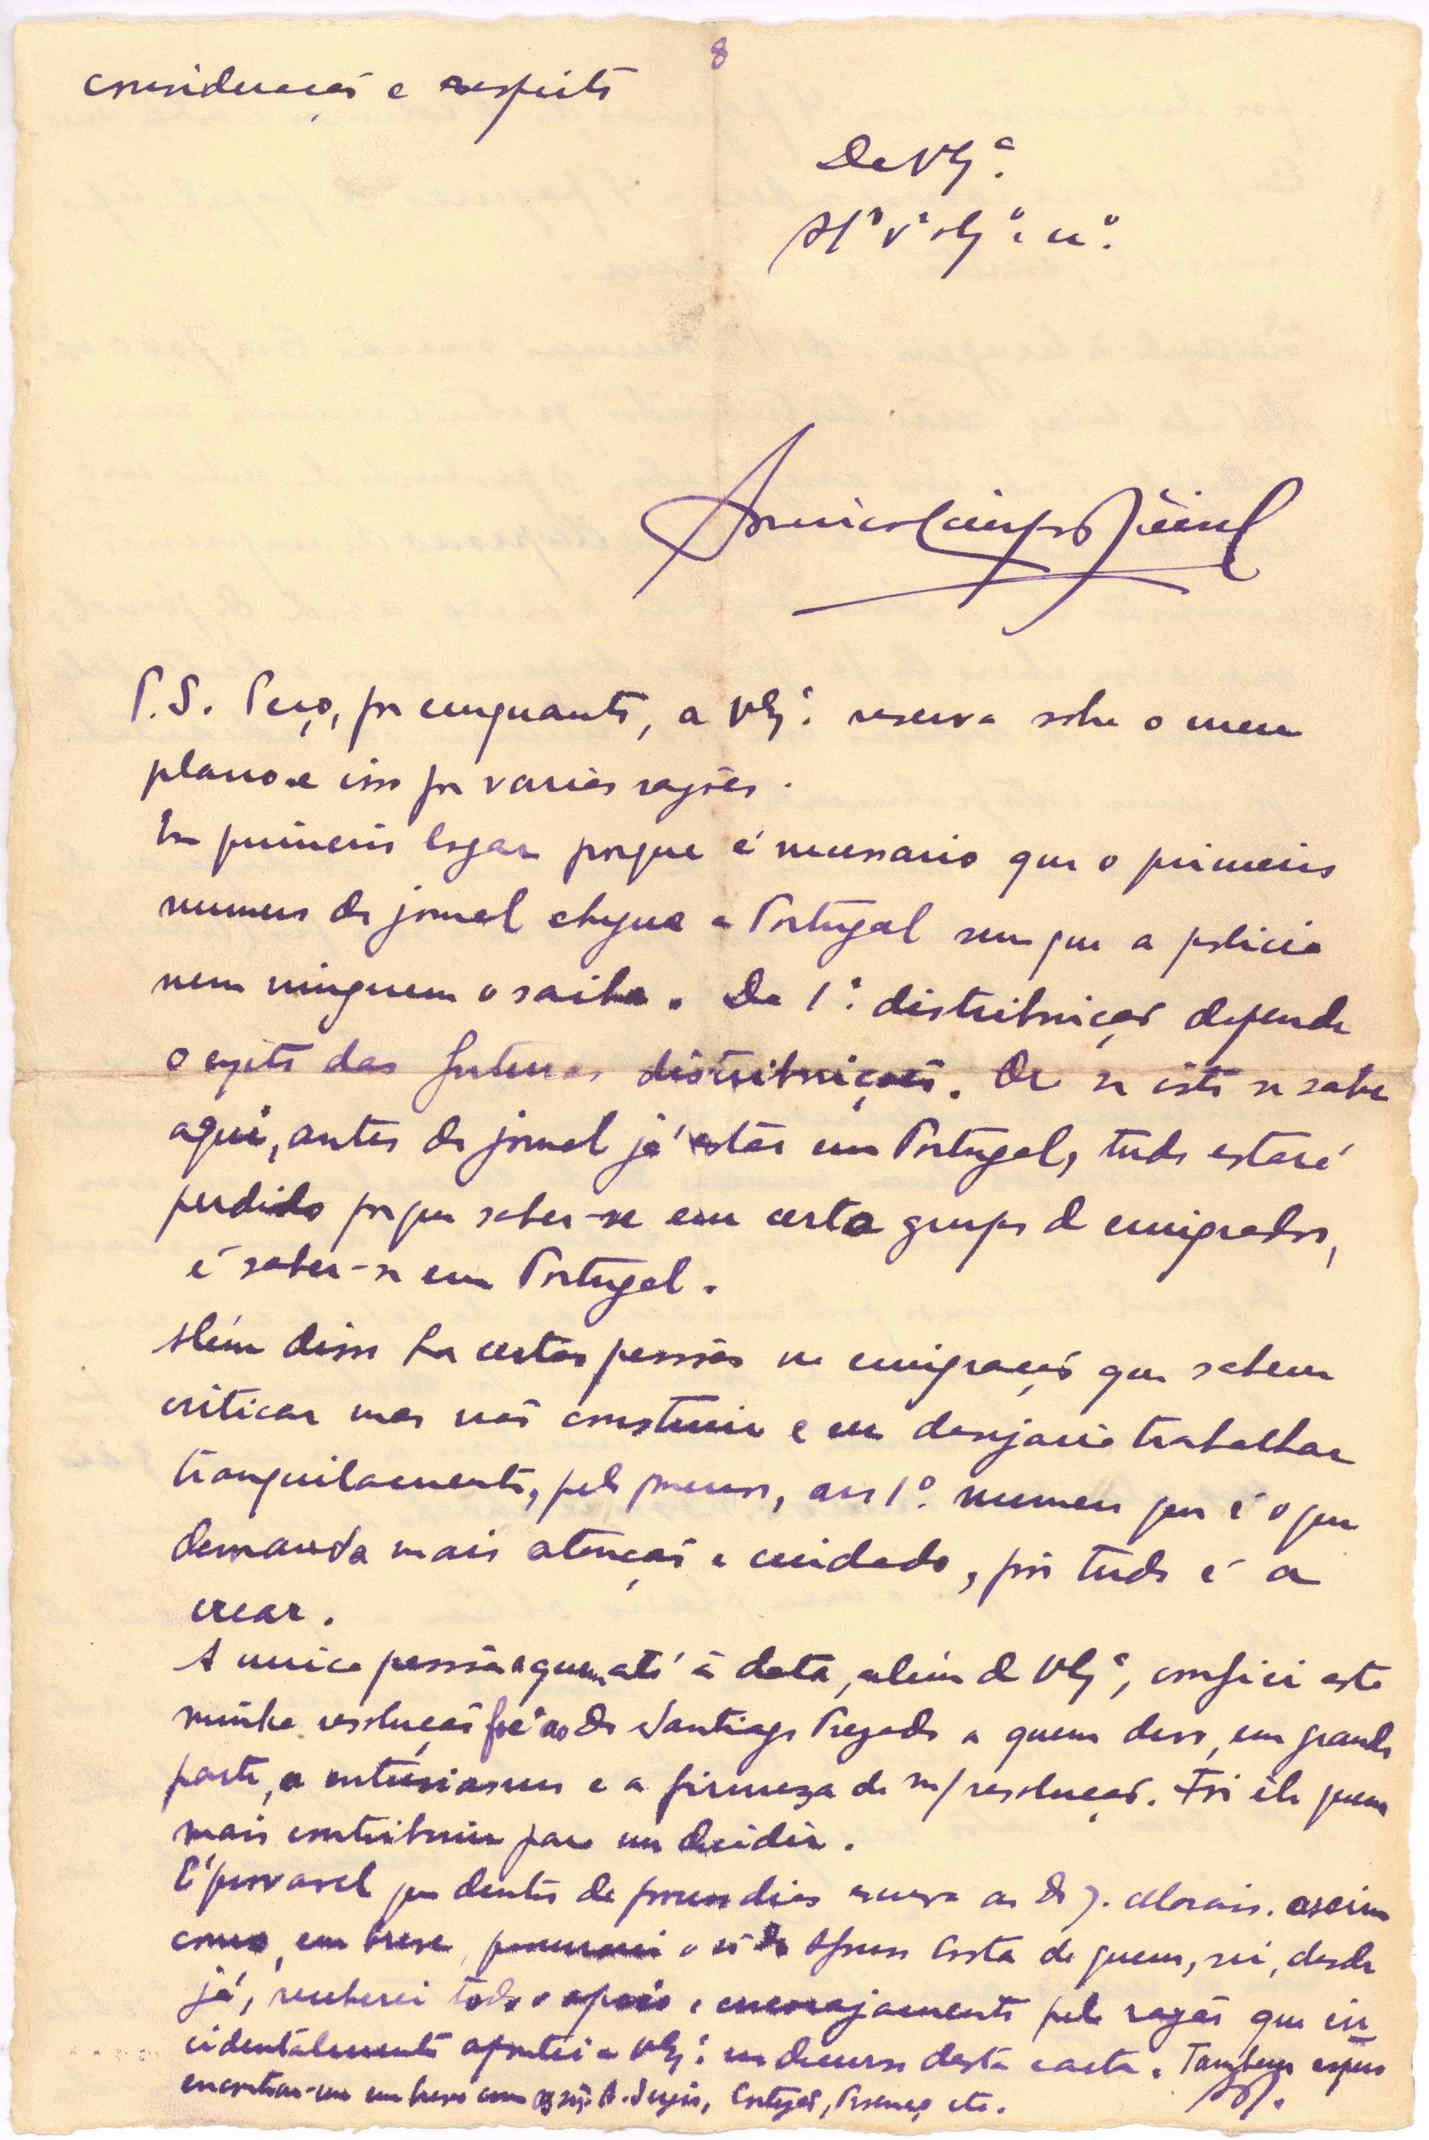 8
consideração e respeito
De V. Ex.ª
P.S. Peço, por emquanto, a V. Ex.ª reserva sobre o meu
plano e isso por varias razões.
Em primeiro logar porque é necessario que o primeiro
numero do jornal chegue a Portugal sem que a policia
nem ninguem o saiba. Da 1ª distribuição depende
o exito das futuras distribuições. Ora se isto se sabe
aqui, antes do jornal já estar em Portugal, tudo estará
perdido porque saber-se em certo grupo d'emigrados,
é saber-se em Portugal.
Além disso ha certas pessoas na emigração que sabem
criticar mas não construir e eu desejaria trabalhar
tranquilamente, pelo menos, ao 1º numero que é o que
demanda mais atenção e cuidado, pois tudo é a
crear.
A unica pessoa a quem até á data, além d V. Ex.ª, confiei esta
minha resolução foi ao Dr Santiago Prezado a quem devo, em grande
parte, o entusiasmo e a firmeza da m/ resolução. Foi ele quem
mais contribuiu para me decidir.
É provavel que dentro de poucos dias escreva ao Dr J. Morais. assim
como, em breve, procurarei o sr Dr Afonso Costa de quem, sei, desde
já, receberei todo o apoio e encorajamento pela razão que in-
cidentalmente apontei a V. Ex.ª no decurso desta carta. Tambem espero
encontrar-me em breve com os srs A. Sergio, Cortezão, Proença, etc.